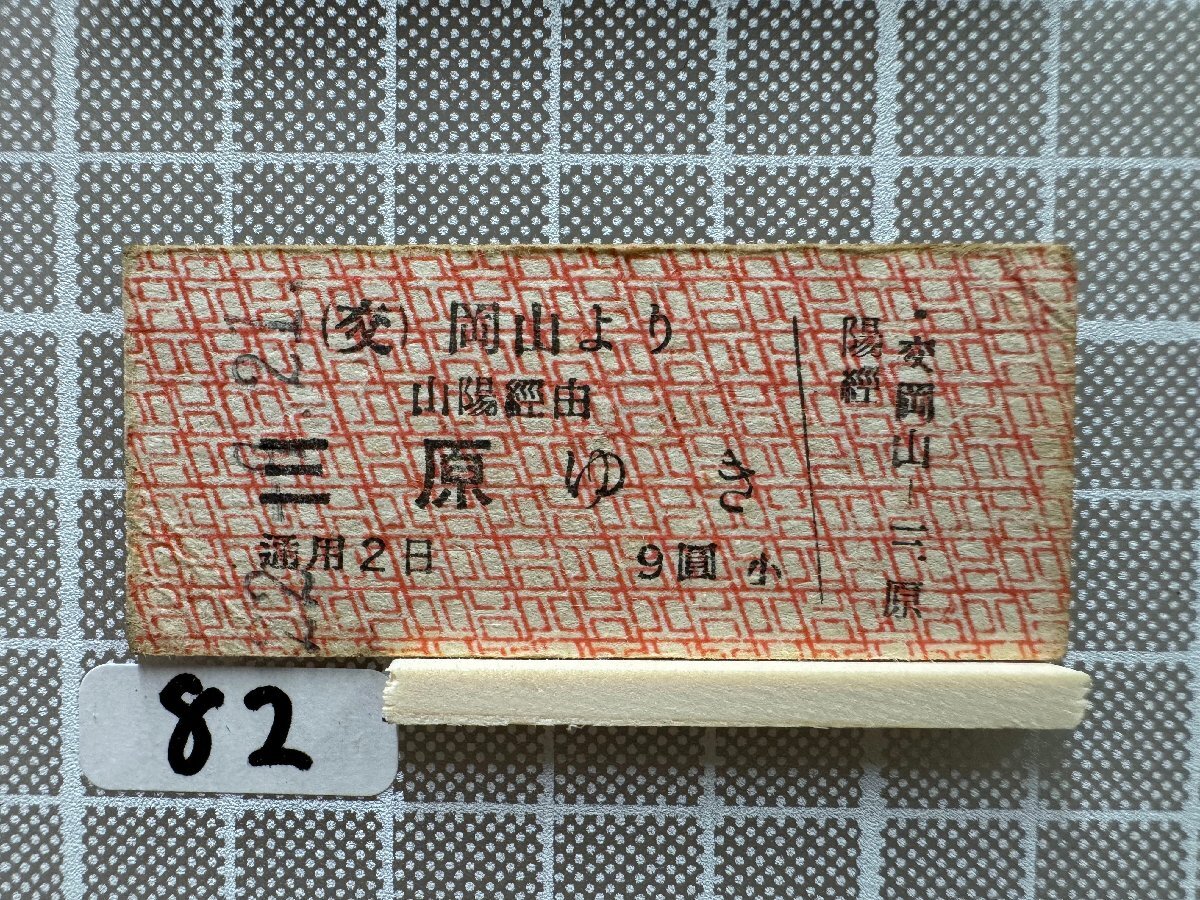 (交) 岡山より
山陽經由
三原ゆき
通用2日 9圓 小
交岡山—三原
陽經
82